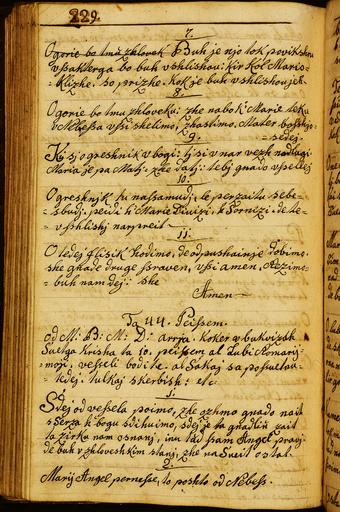 229.
7.
Ogorie bo tmu zhlovek Buh je njo tok povikshou
vsBakterga bo buh vshlishou: kir kol Mario
Klizhe. so prizhe. kok je buh vshlishou jeh.
8.
Ogorie bo tmu zhloveku: zhe na bo k' Marie teku
v Nebessa vsi shelimo, zhastimo. Mater boshjo:
9. = sedej.
Ki so greshnik v bogi: tj si v nar vezh nadlugi
Maria je pa Matj: zhe datj: tebj gnado vselej
10.
O greshnik tu na ssamudj, le per zaitu sebe
sbudj. pejdi k' Marie Divizi. k' Sornizi. de te
vshlishj nar preit
11.
O tedej flisik hodimo, de odpushainje dobimo.
she ghade druge ssraven, vsi amen,
buh nam dej: she
Amen
Ta 44. Peissem.
od M: B: M: D: arrja: koker v bukvizah
Svetga Krisha ta 10. peissem al Lubi Romarj
moji, vesseli bodite. al sakaj sa possvetnu
kdej. tulkaj skerbish: etc
1.
Sdej od vessela poimo, zhe ozhmo gnado nait
s Serza k' bogu sdihuimo, sdej je ta gnadliu zait
ta zirku nam osnanj, inu tud ssam Angel pravj.
de buh v zhloveshkim stanj, zhe na Sveit ostat.
2.
Marij Angel pernesse, to poshto od Nebess.